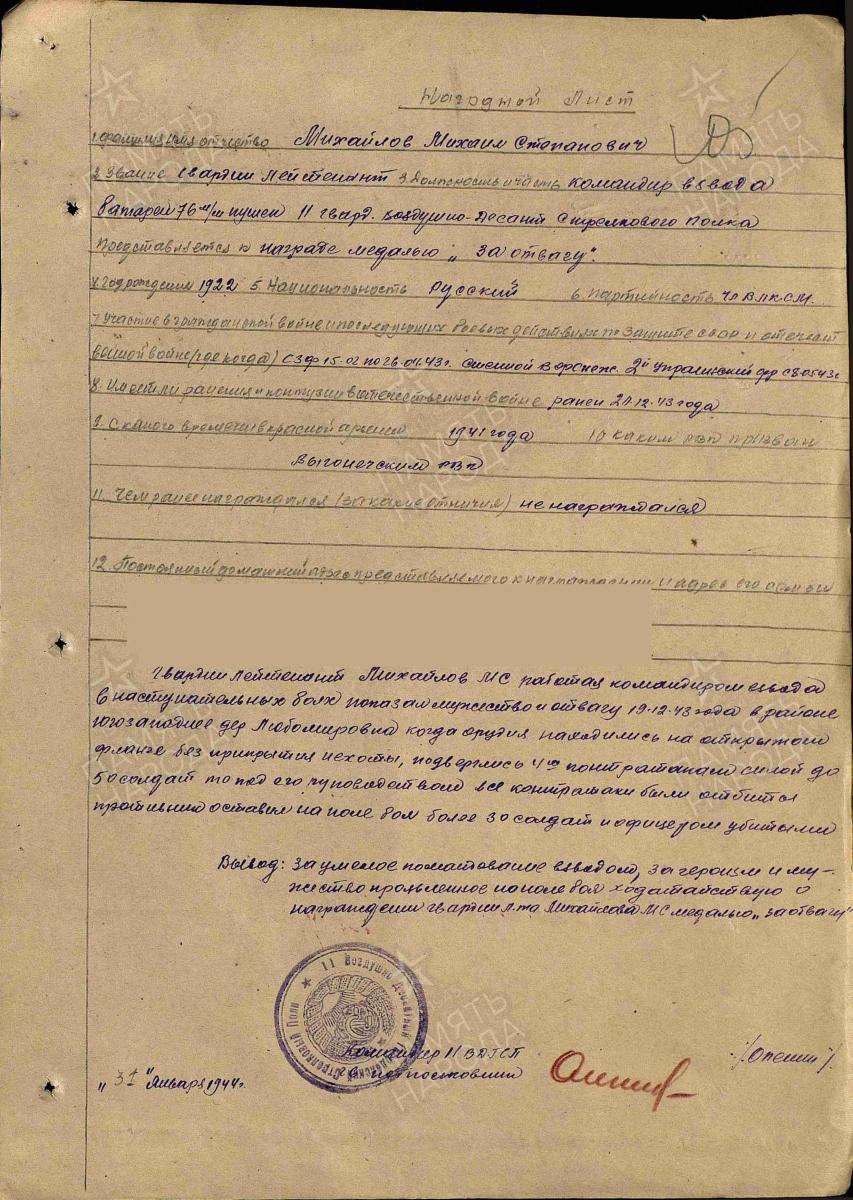 Наградной Лист
1. Фамилия Имя отчество Михайлов Михаил Степанович
2 Звание Гвардии Лейтенант 3. Должность и часть командир взвода
батареи 76 м/м пушек 11 гвард. Воздушно-Десант Стрелкового Полка
Представляется к награде медалью „За отвагу".
4 год рождения 1922 5. Национальность Русский 6. Партийность чл ВЛКСМ.
7 участие в гражданской войне и последующих боевых действиях по защите СССР и отечест
венной войне (где когда) СЗФ 15.02 по 26.04.43г. Степной Воронеж. 2й Украинский фр с
8. Имеет ли ранения и контузии в отечественной войне ранен 12.43 года
9. С какого времени в красной армии 1941 года 10 каким рвк призван
Выгонечским рвк
11. Чем ранее награждался (за какие отличия) не награждался
12. Постоянный домашний адрес представляемого к награждению и адрес его семьи
Гвардии лейтенант Михайлов МС работая командиром взвода
в наступательных боях показал мужество и отвагу 19.12.43 года в районе
югозападнее дер Любомировка когда орудия находились на открытом
фланге без прикрытия пехоты, подверглись 4м контратакам силой до
50 солдат то под его руководством все контратаки были отбиты
противник оставил на поле боя более 30 солдат и офицером убитыми
Вывод: за умелое командование взводом, за героизм и му-
жество проявленное на поле боя ходатайствую о
награждении гвардии л-та Михайлова МС медалью „за отвагу"
11 Воздушно Десантный Гвардейский Стрелковый Полк
Командир 11 ВДГСП
гв. подполковник /Оленин/.
„31" Января 1944г.
ПАМЯТЬ НАРОДА